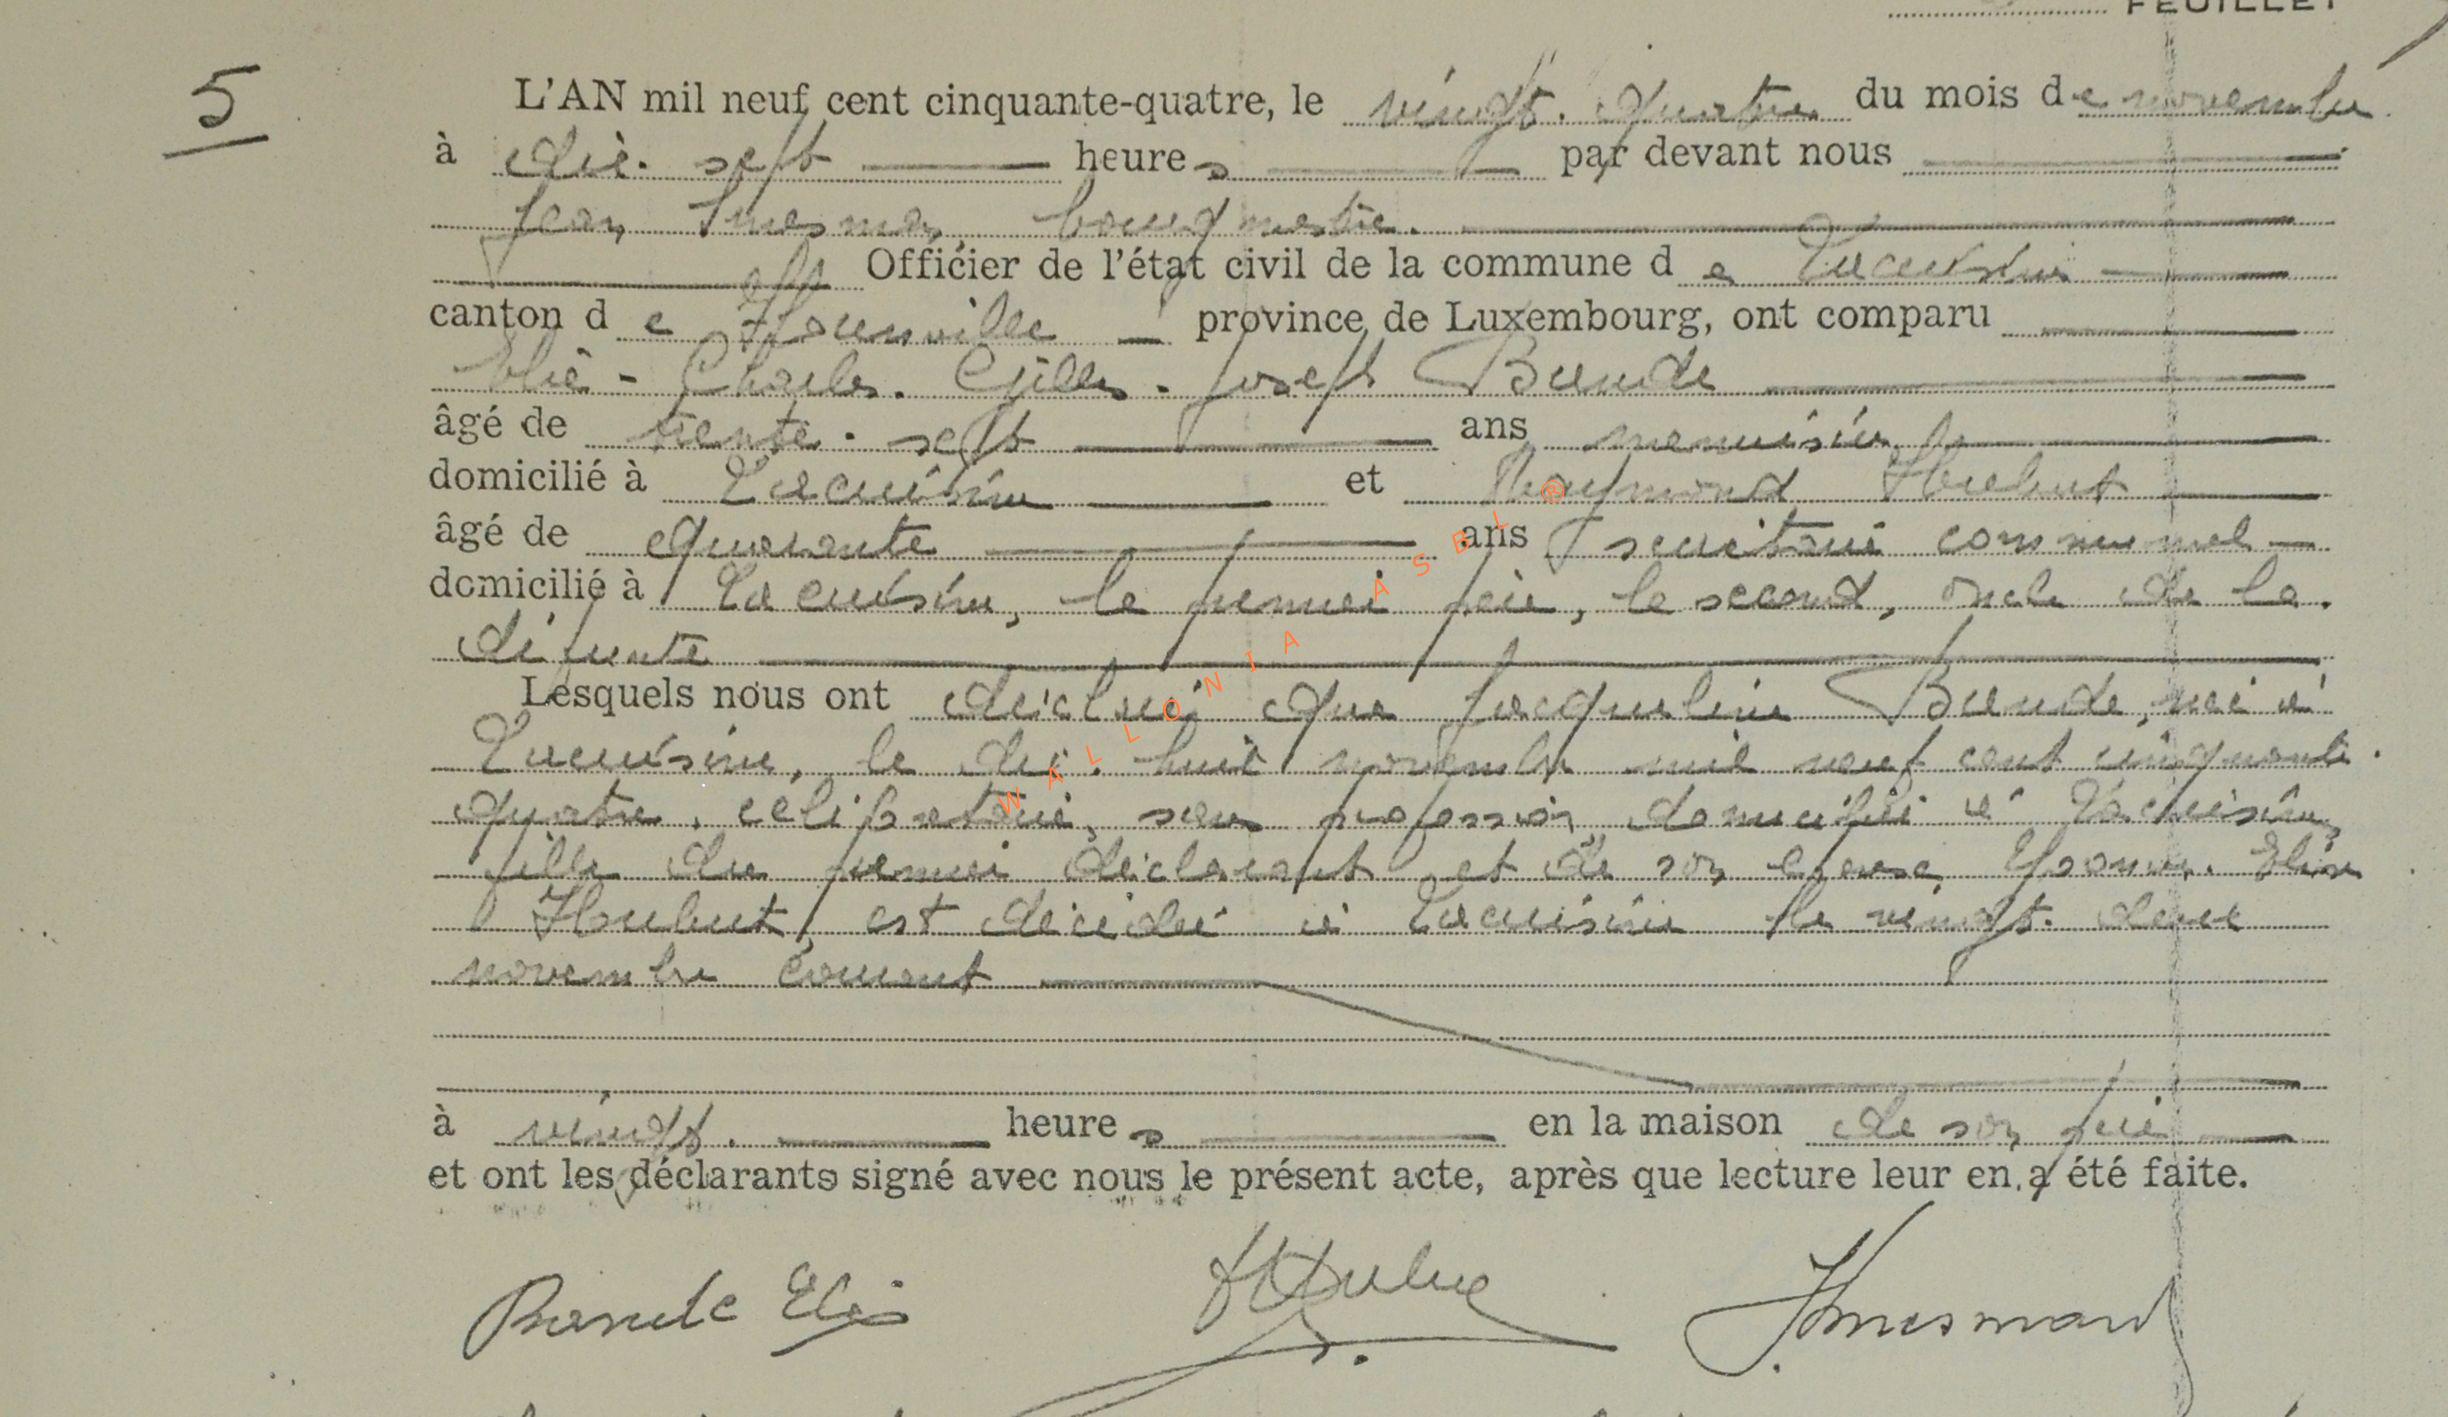 FEUILLET
5
L'AN mil neuf cent cinquante-quatre, le vingt-quatre du mois de novembre
à dix-sept heures par devant nous
Jean bourgmestre
Officier de l'état civil de la commune de Lacuisine
canton de province de Luxembourg, ont comparu
Elie-Charles-Gilles-Joseph Baude
âgé de trente-sept ans menuisier
domicilié à Lacuisine et Raymond Houbut
âgé de quarante ans secrétaire communal
domicilié à Lacuisine, le premier père, le second, oncle de la
défunte
Lesquels nous ont déclaré que Jacqueline Baude, née à
Lacuisine, le dix-huit novembre mil neuf cent cinquante-
quatre, célibataire, sans profession, domiciliée à Lacuisine,
fille du premier déclarant et de son épouse Yvonne-Elise
Houbut, est décédée à Lacuisine le vingt-deux
novembre courant
à vingt heures en la maison de son père
et ont les déclarants signé avec nous le présent acte, après que lecture leur en a été faite.
Baude Elie
WALLONIA ASBL ®